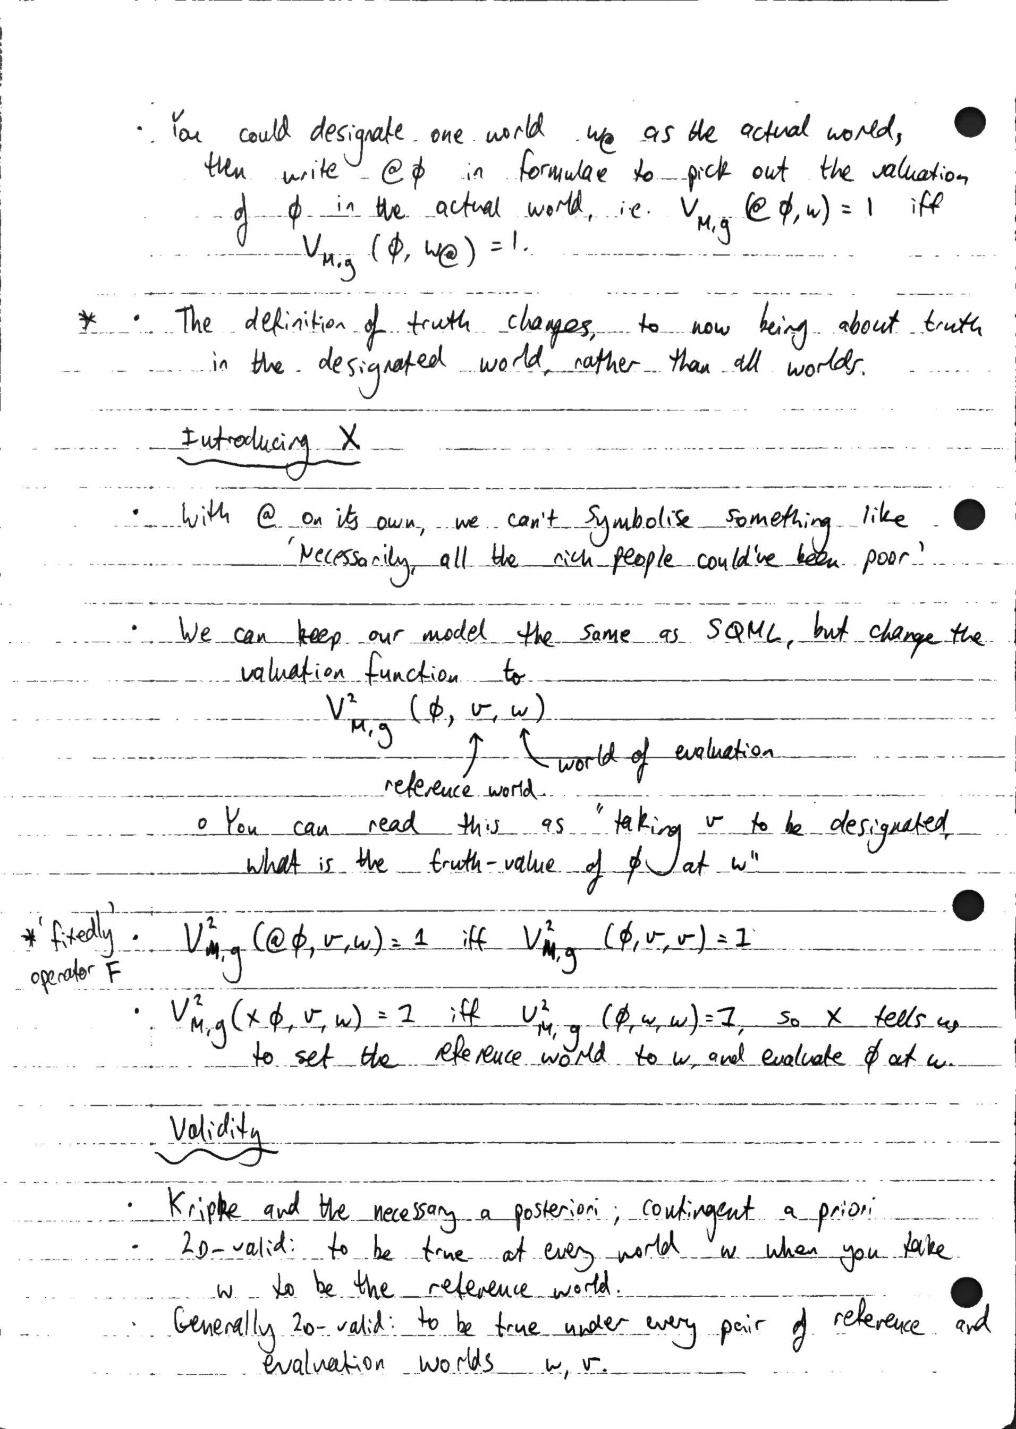 · You could designate one world w@ as the actual world,
then write @ϕ in formulae to pick out the valuation
of ϕ in the actual world, ie. V_M,g (@ϕ,w) = 1 iff
V_M,g (ϕ, w@) = 1.
* · The definition of truth changes, to now being about truth
in the designated world, rather than all worlds.
Introducing X
· With @ on its own, we can't symbolise something like
'Necessarily, all the rich people could've been poor'
· We can keep our model the same as SQML, but change the
valuation function to
V²_M,g (ϕ, v, w)
world of evaluation
reference world
o You can read this as "taking v to be designated,
what is the truth-value of ϕ at w"
* 'fixedly' operator F
· V²_M,g (@ϕ,v,w) = 1 iff V²_M,g (ϕ,v,v) = 1
· V²_M,g (×ϕ, v, w) = 1 iff V²_M,g (ϕ,w,w)=1, so X tells us
to set the reference world to w, and evaluate ϕ at w.
Validity
· Kripke and the necessary a posteriori; contingent a priori
· 2D-valid: to be true at every world w when you take
w to be the reference world.
· Generally 2D-valid: to be true under every pair of reference and
evaluation worlds w, v.